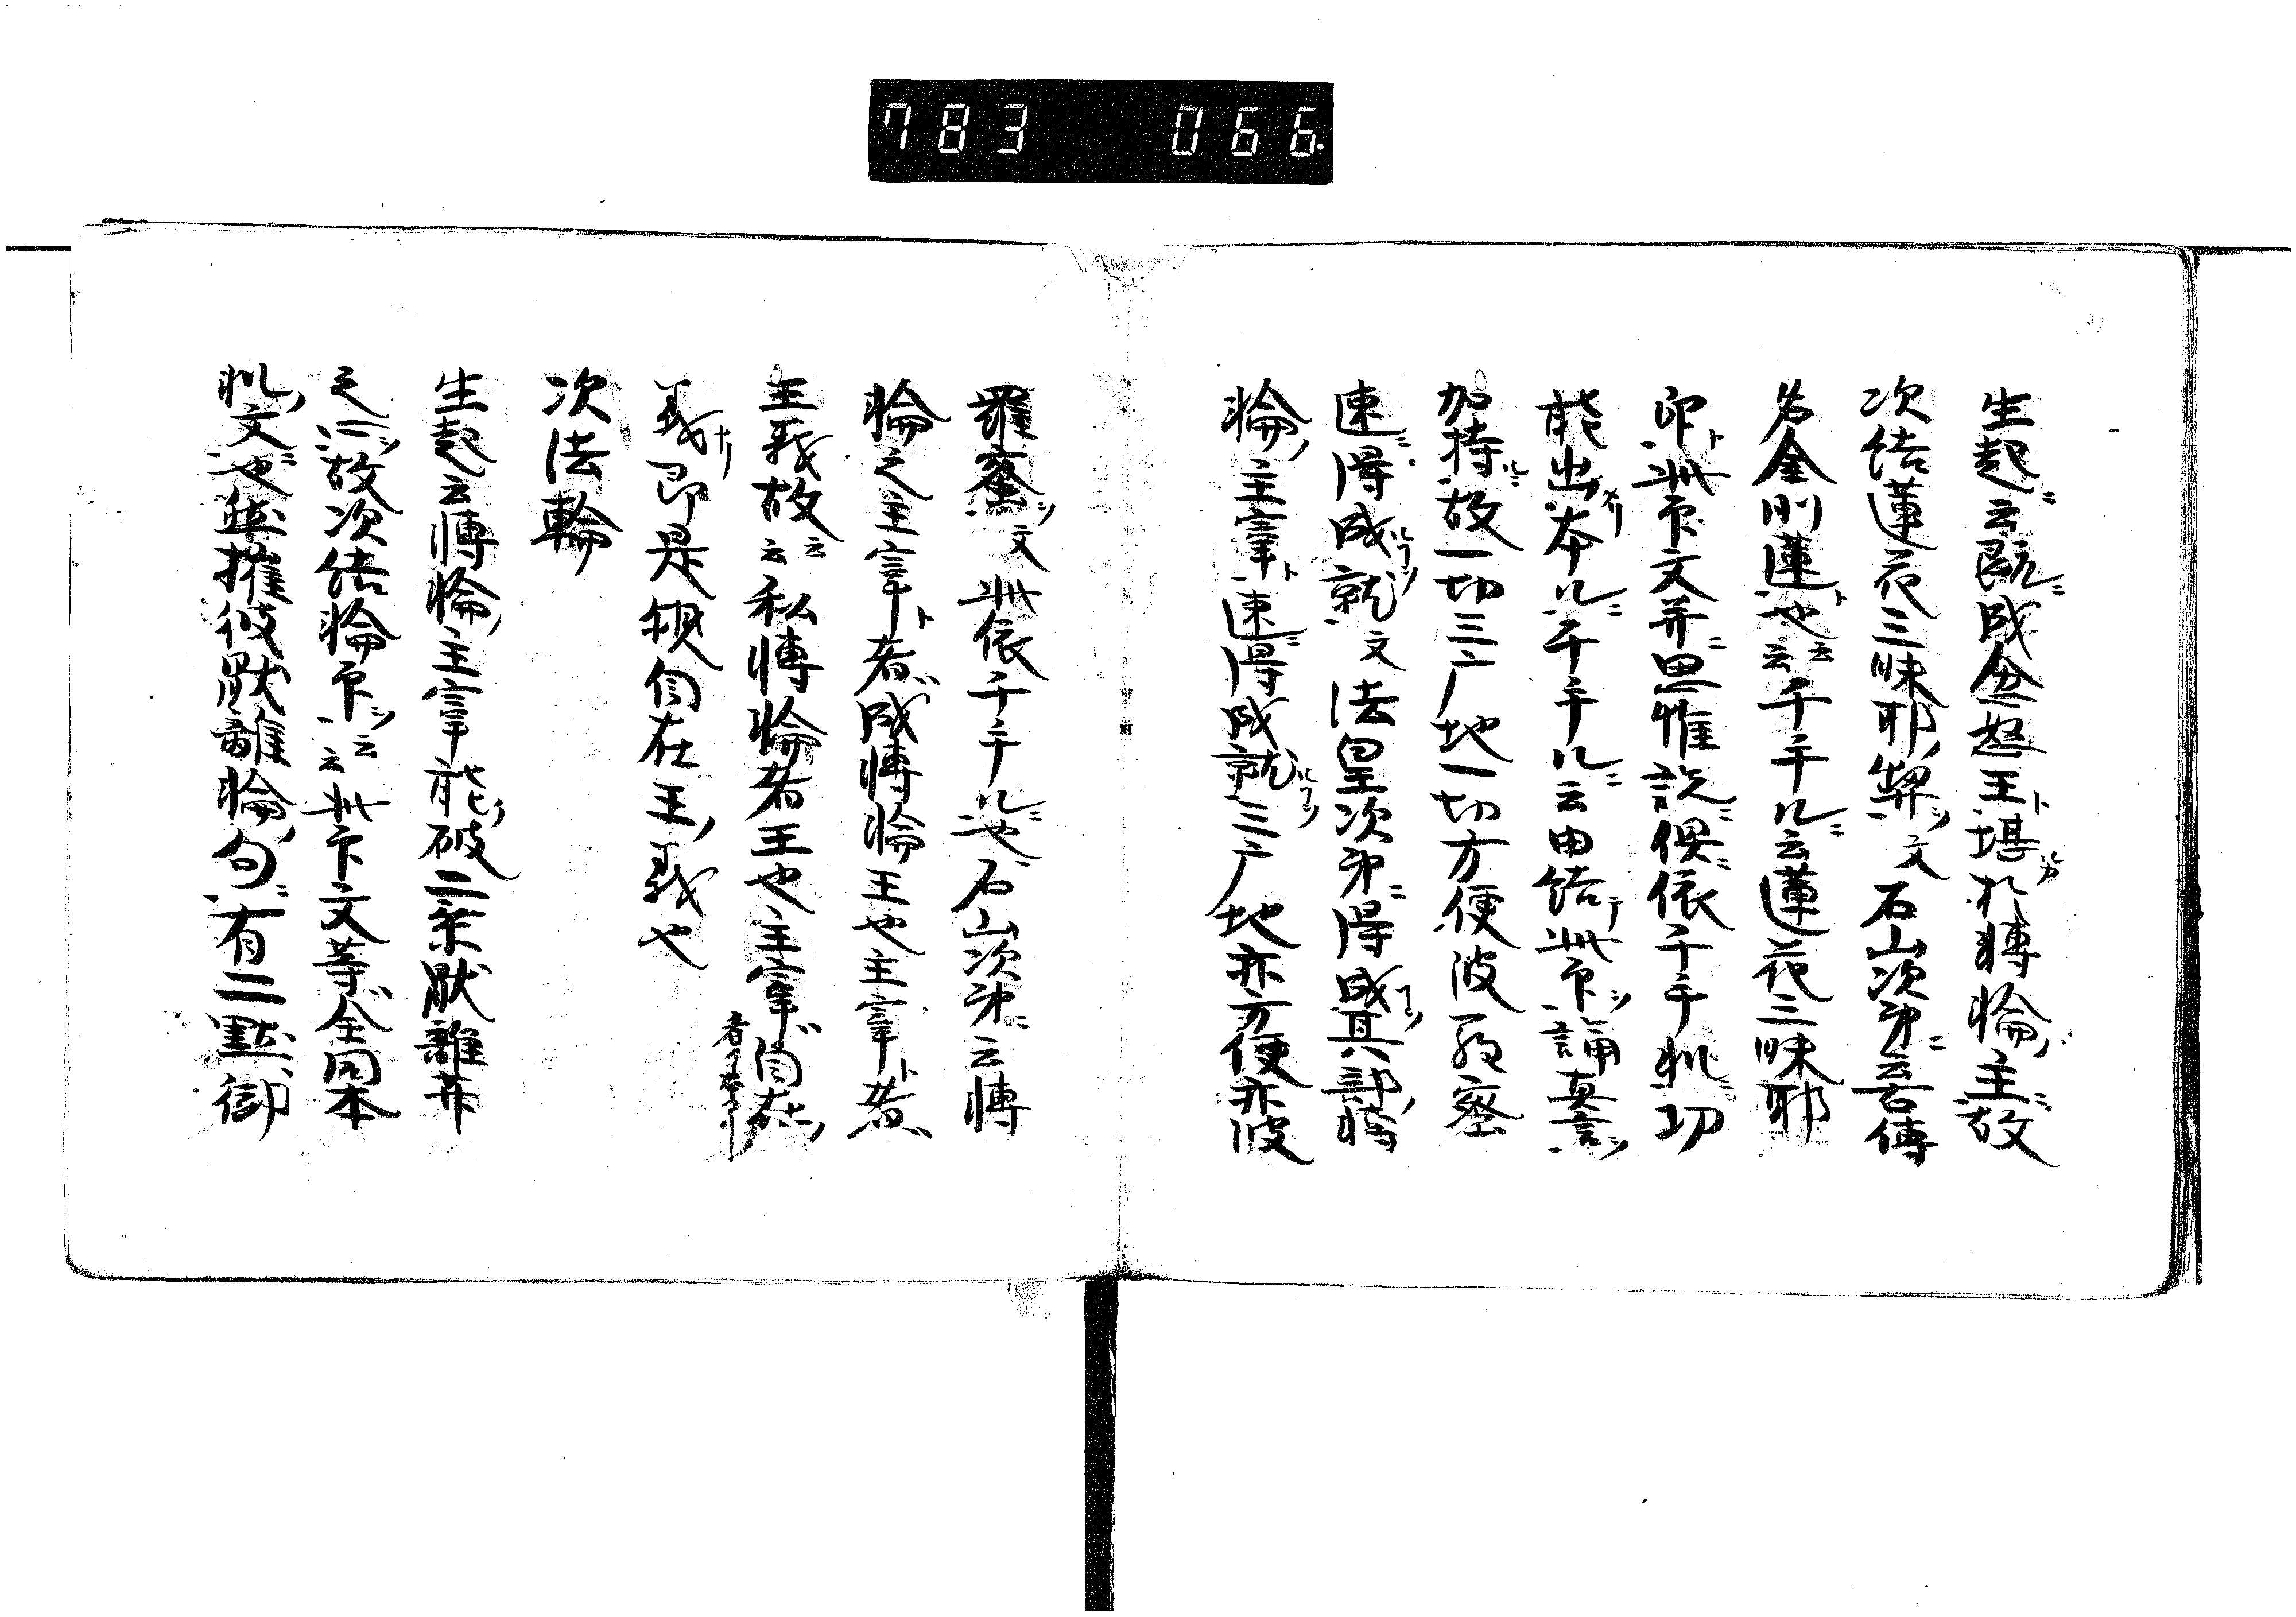 783 066.
生起云既成忿怒王堪於轉輪主故
次結蓮花三昧耶契文石山次第云若傳
名金剛蓮也云云千手軌云蓮花三昧耶
印此印文并思惟説偈依千手軌功
能出本軌千手軌云由結此印誦真言
加持故一切三广地一切方便波羅蜜
速得成就文法皇次第得成其部轉
輪主宰速得成就三广地亦方便亦波
羅蜜文此依千手軌也石山次第云轉
輪之主宰者成轉輪王也主宰者
主義故云云私轉輪者王也主宰自在
義即是自在王義也
次法輪
生起云轉輪主宰能破二乘猒離并
之心故次結輪印云云此印文等全同本
軌文也但摧彼猒離輪句有二點御